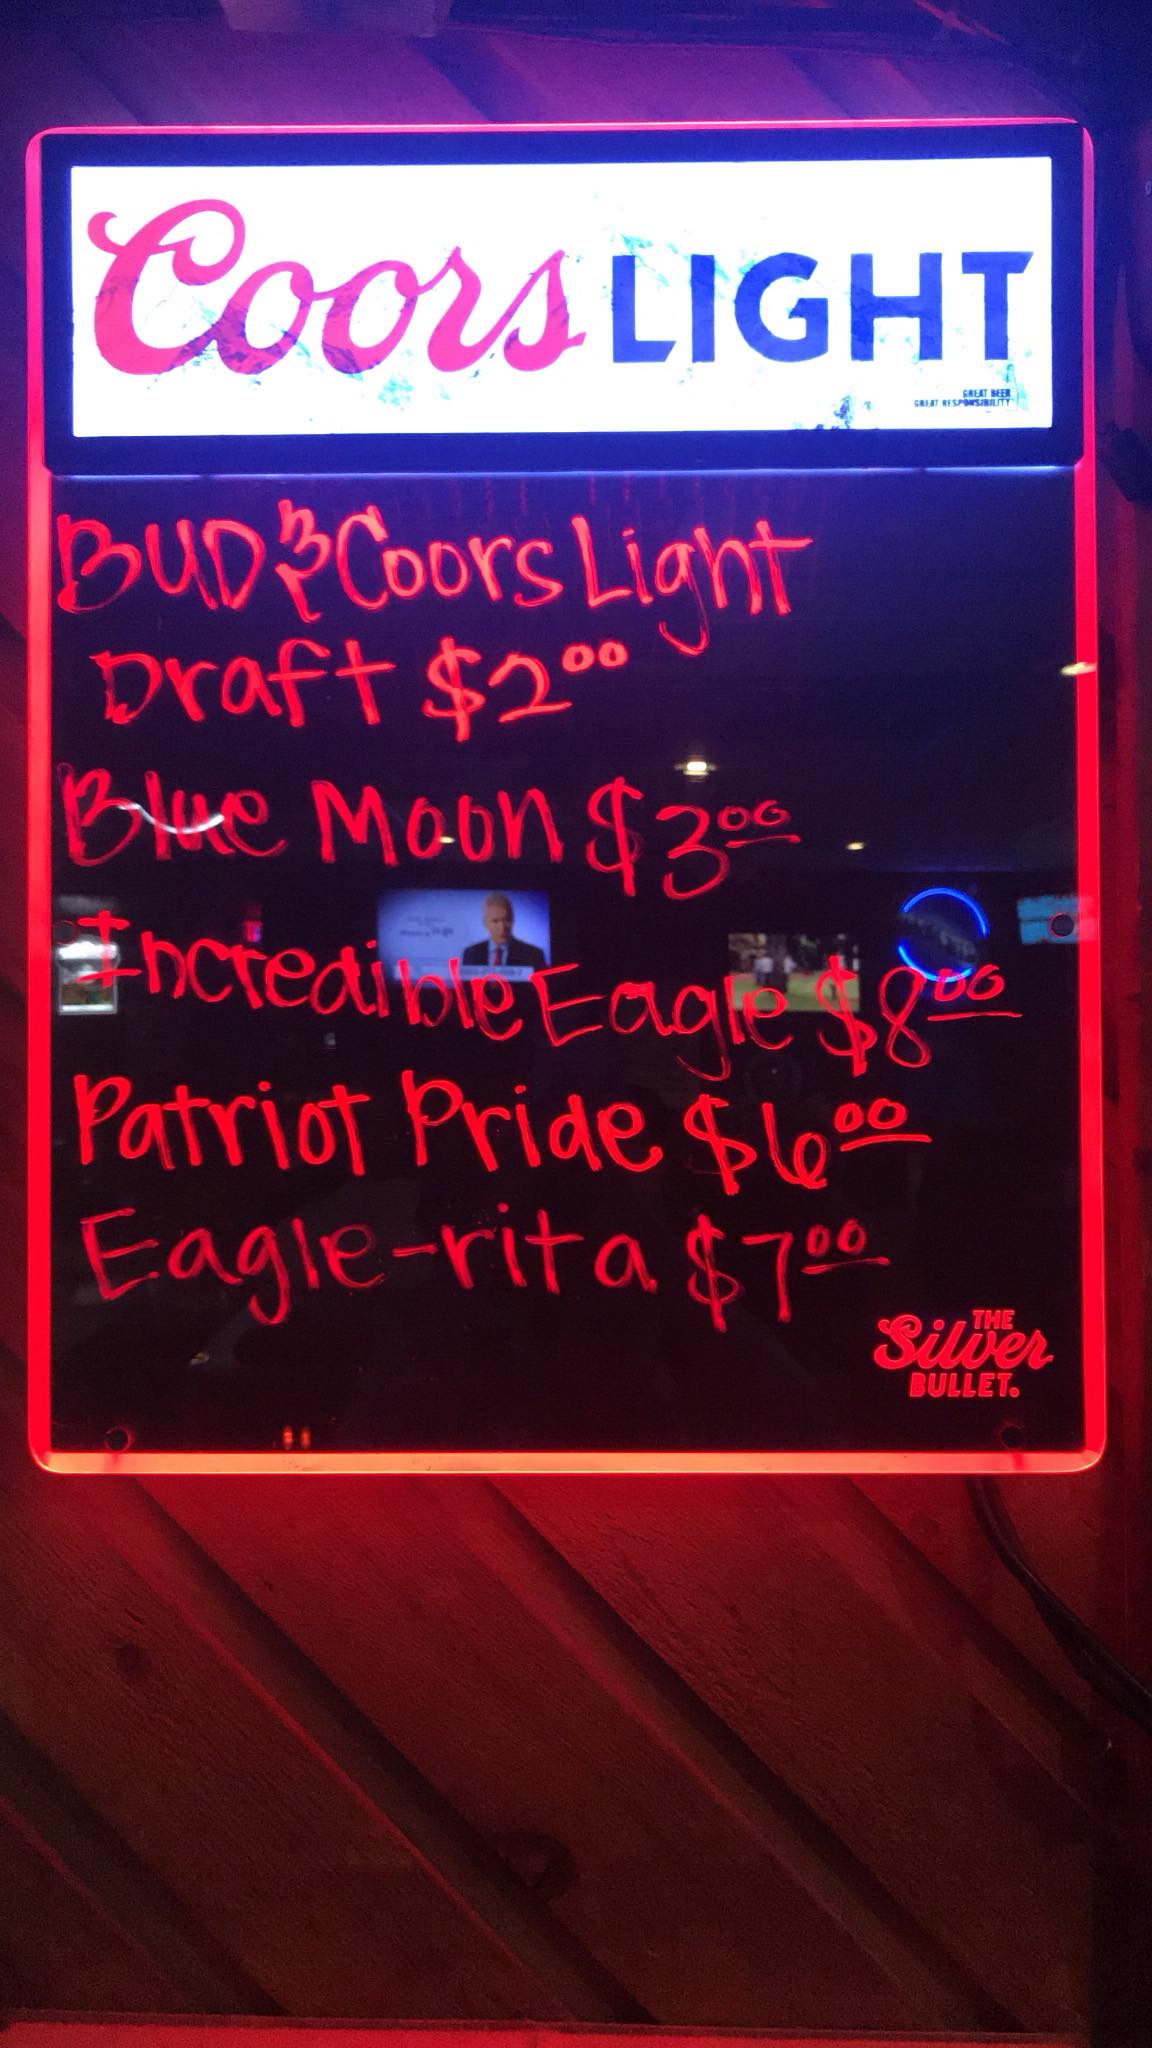 Coors LIGHT
GREAT BEER
GREAT RESPONSIBILITY
BUD & Coors Light
Draft $2.00
Blue Moon $3.00
Incredible Eagle $8.00
Patriot Pride $6.00
Eagle-rita $7.00
THE
Silver
BULLET.